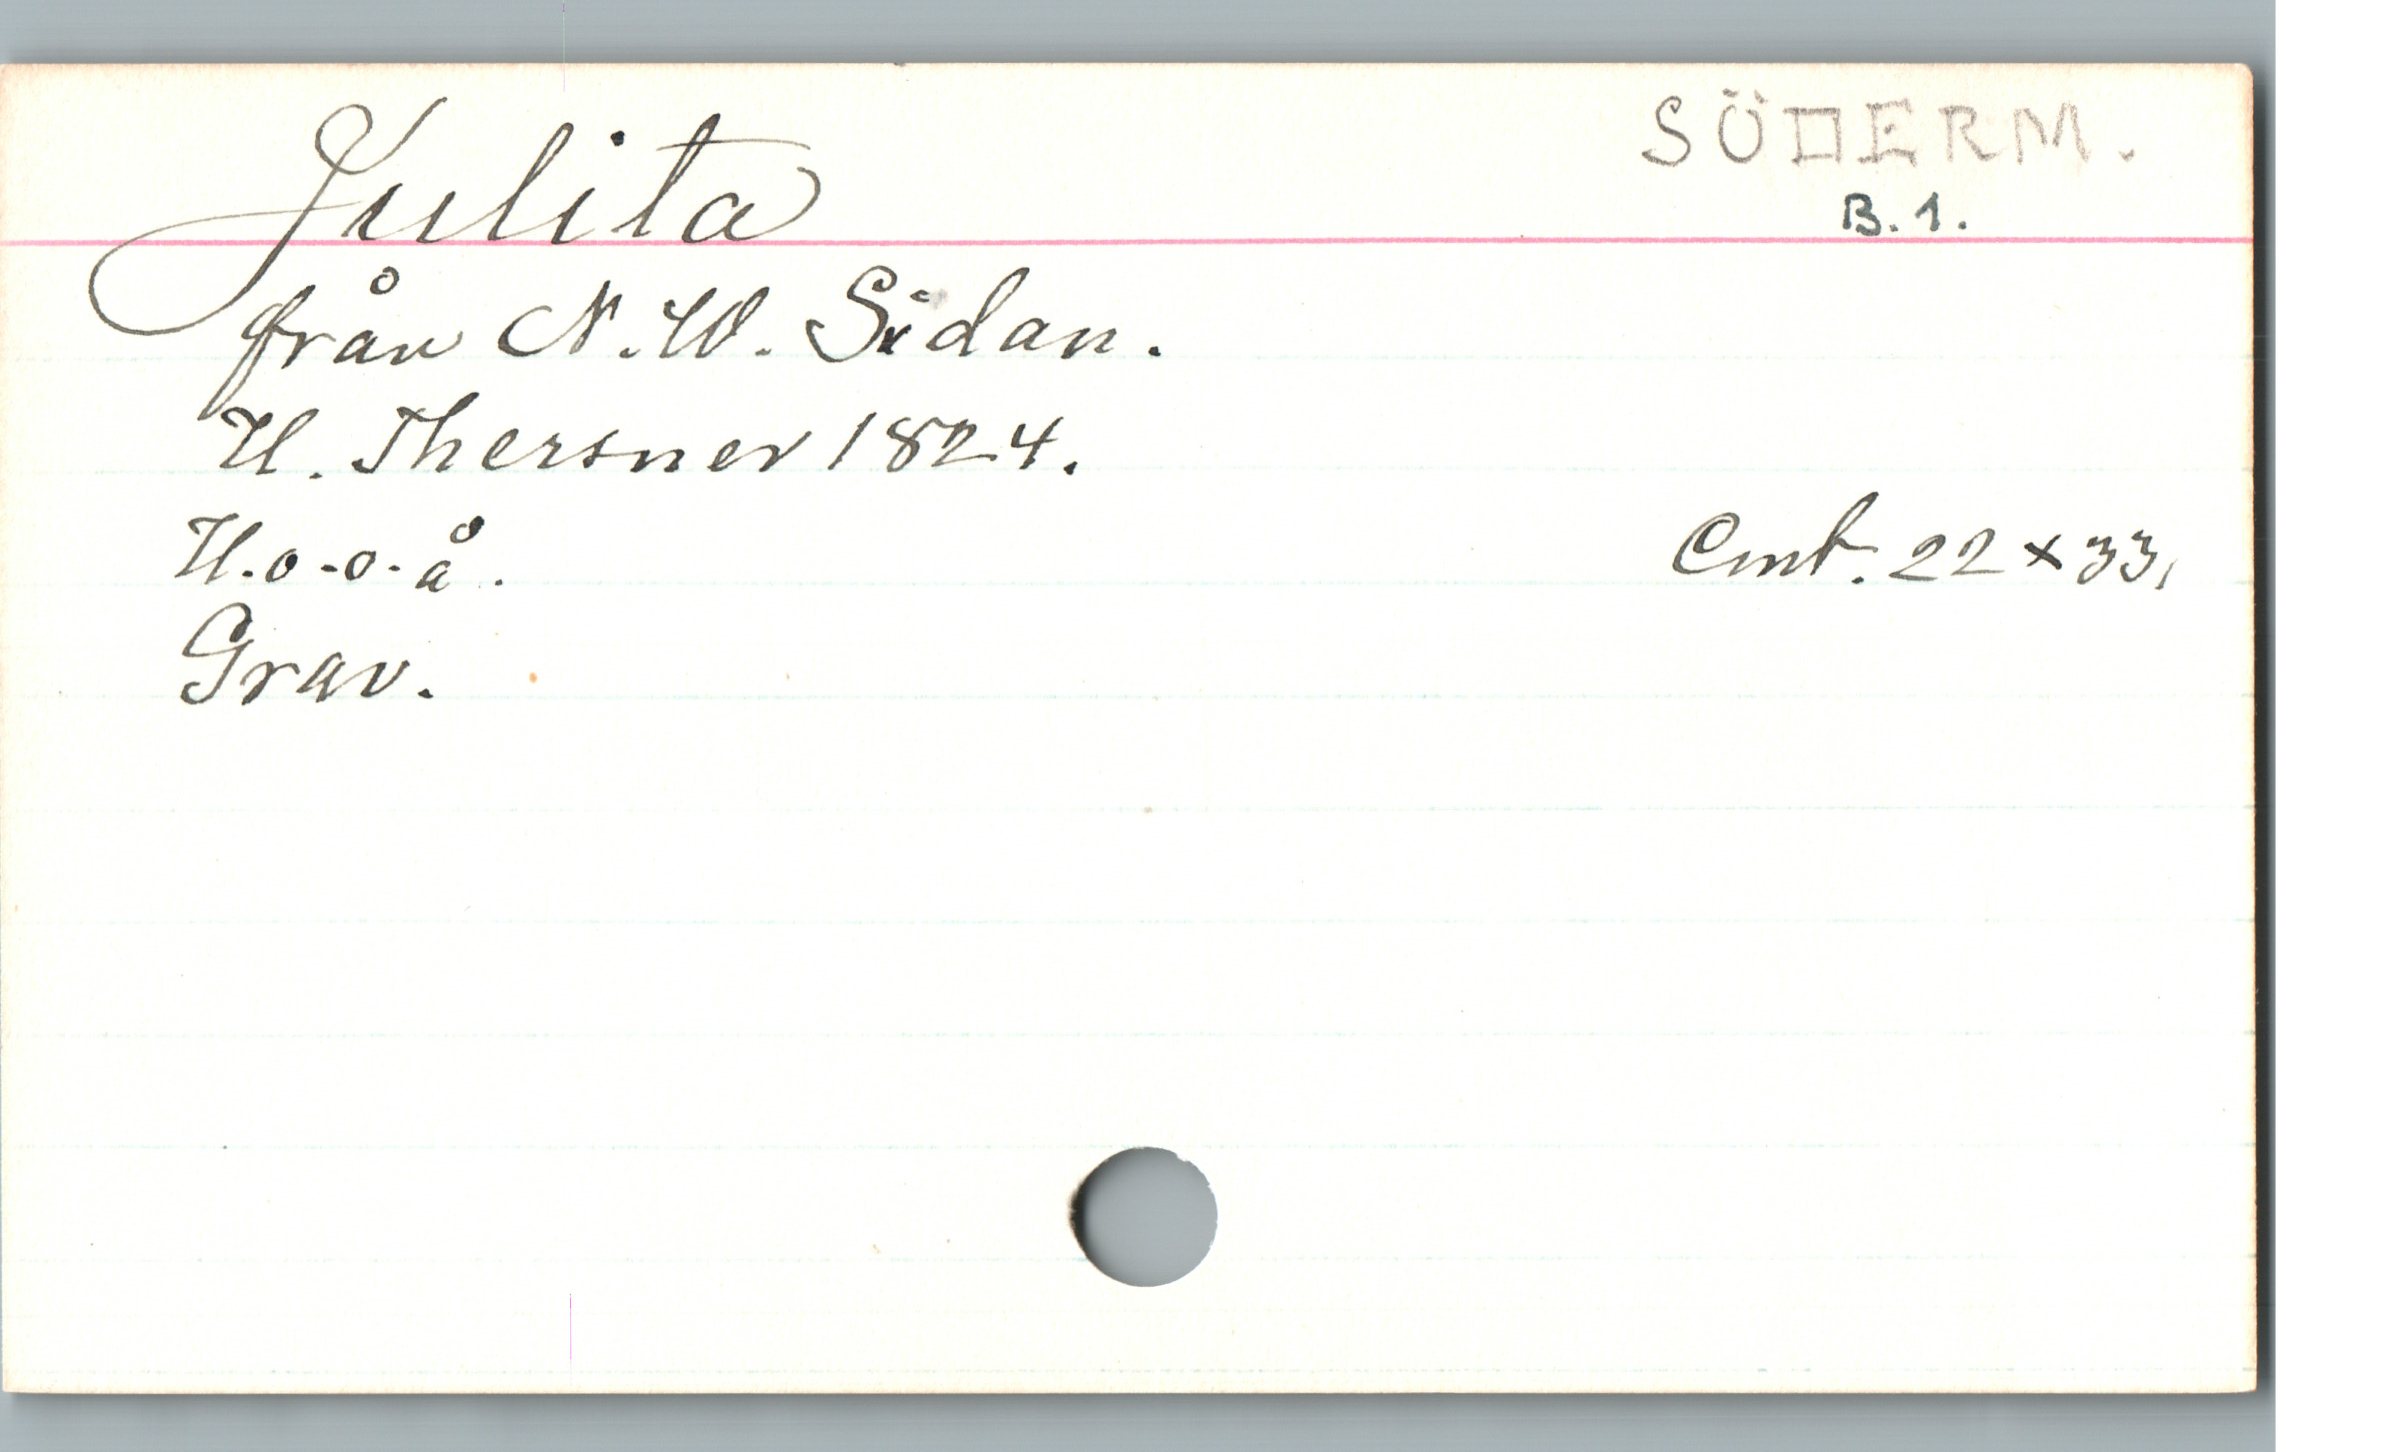 Julita
SÖDERM.
B. 1.
från N. W. Sidan.
U. Thersner 1824.
U. o. o. å.
Cmt. 22 x 33,
Grav.